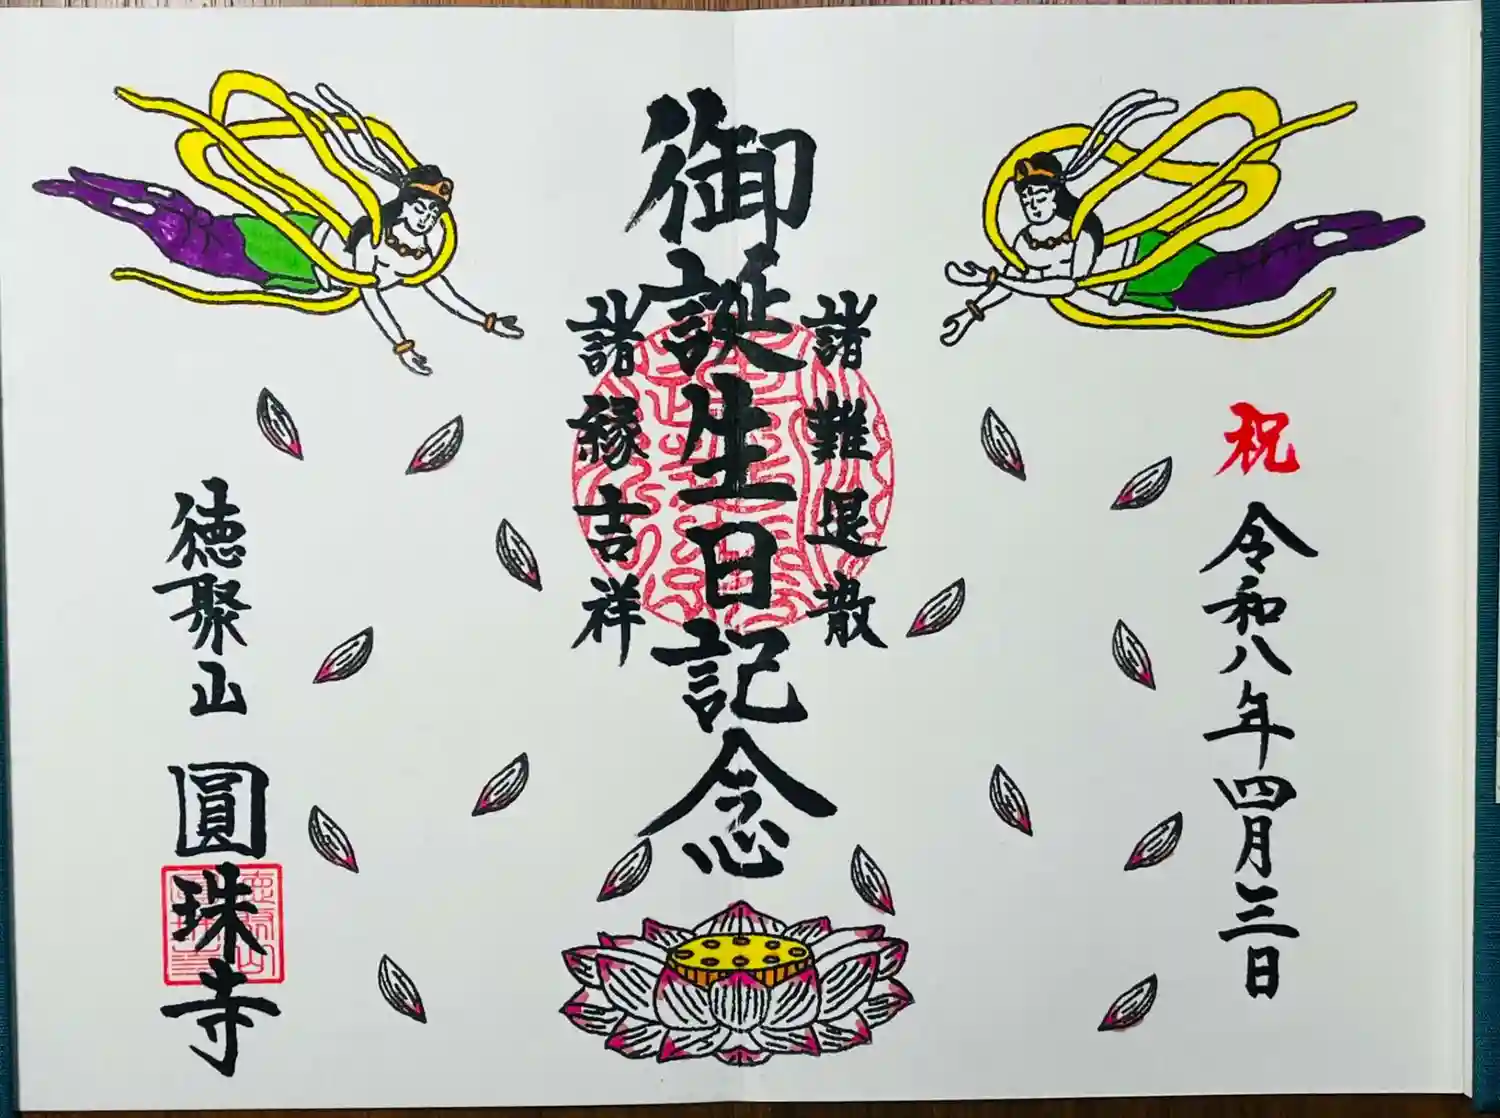 祝 令和八年四月三日
諸難退散
御誕生日記念
諸縁吉祥
徳聚山 圓珠寺